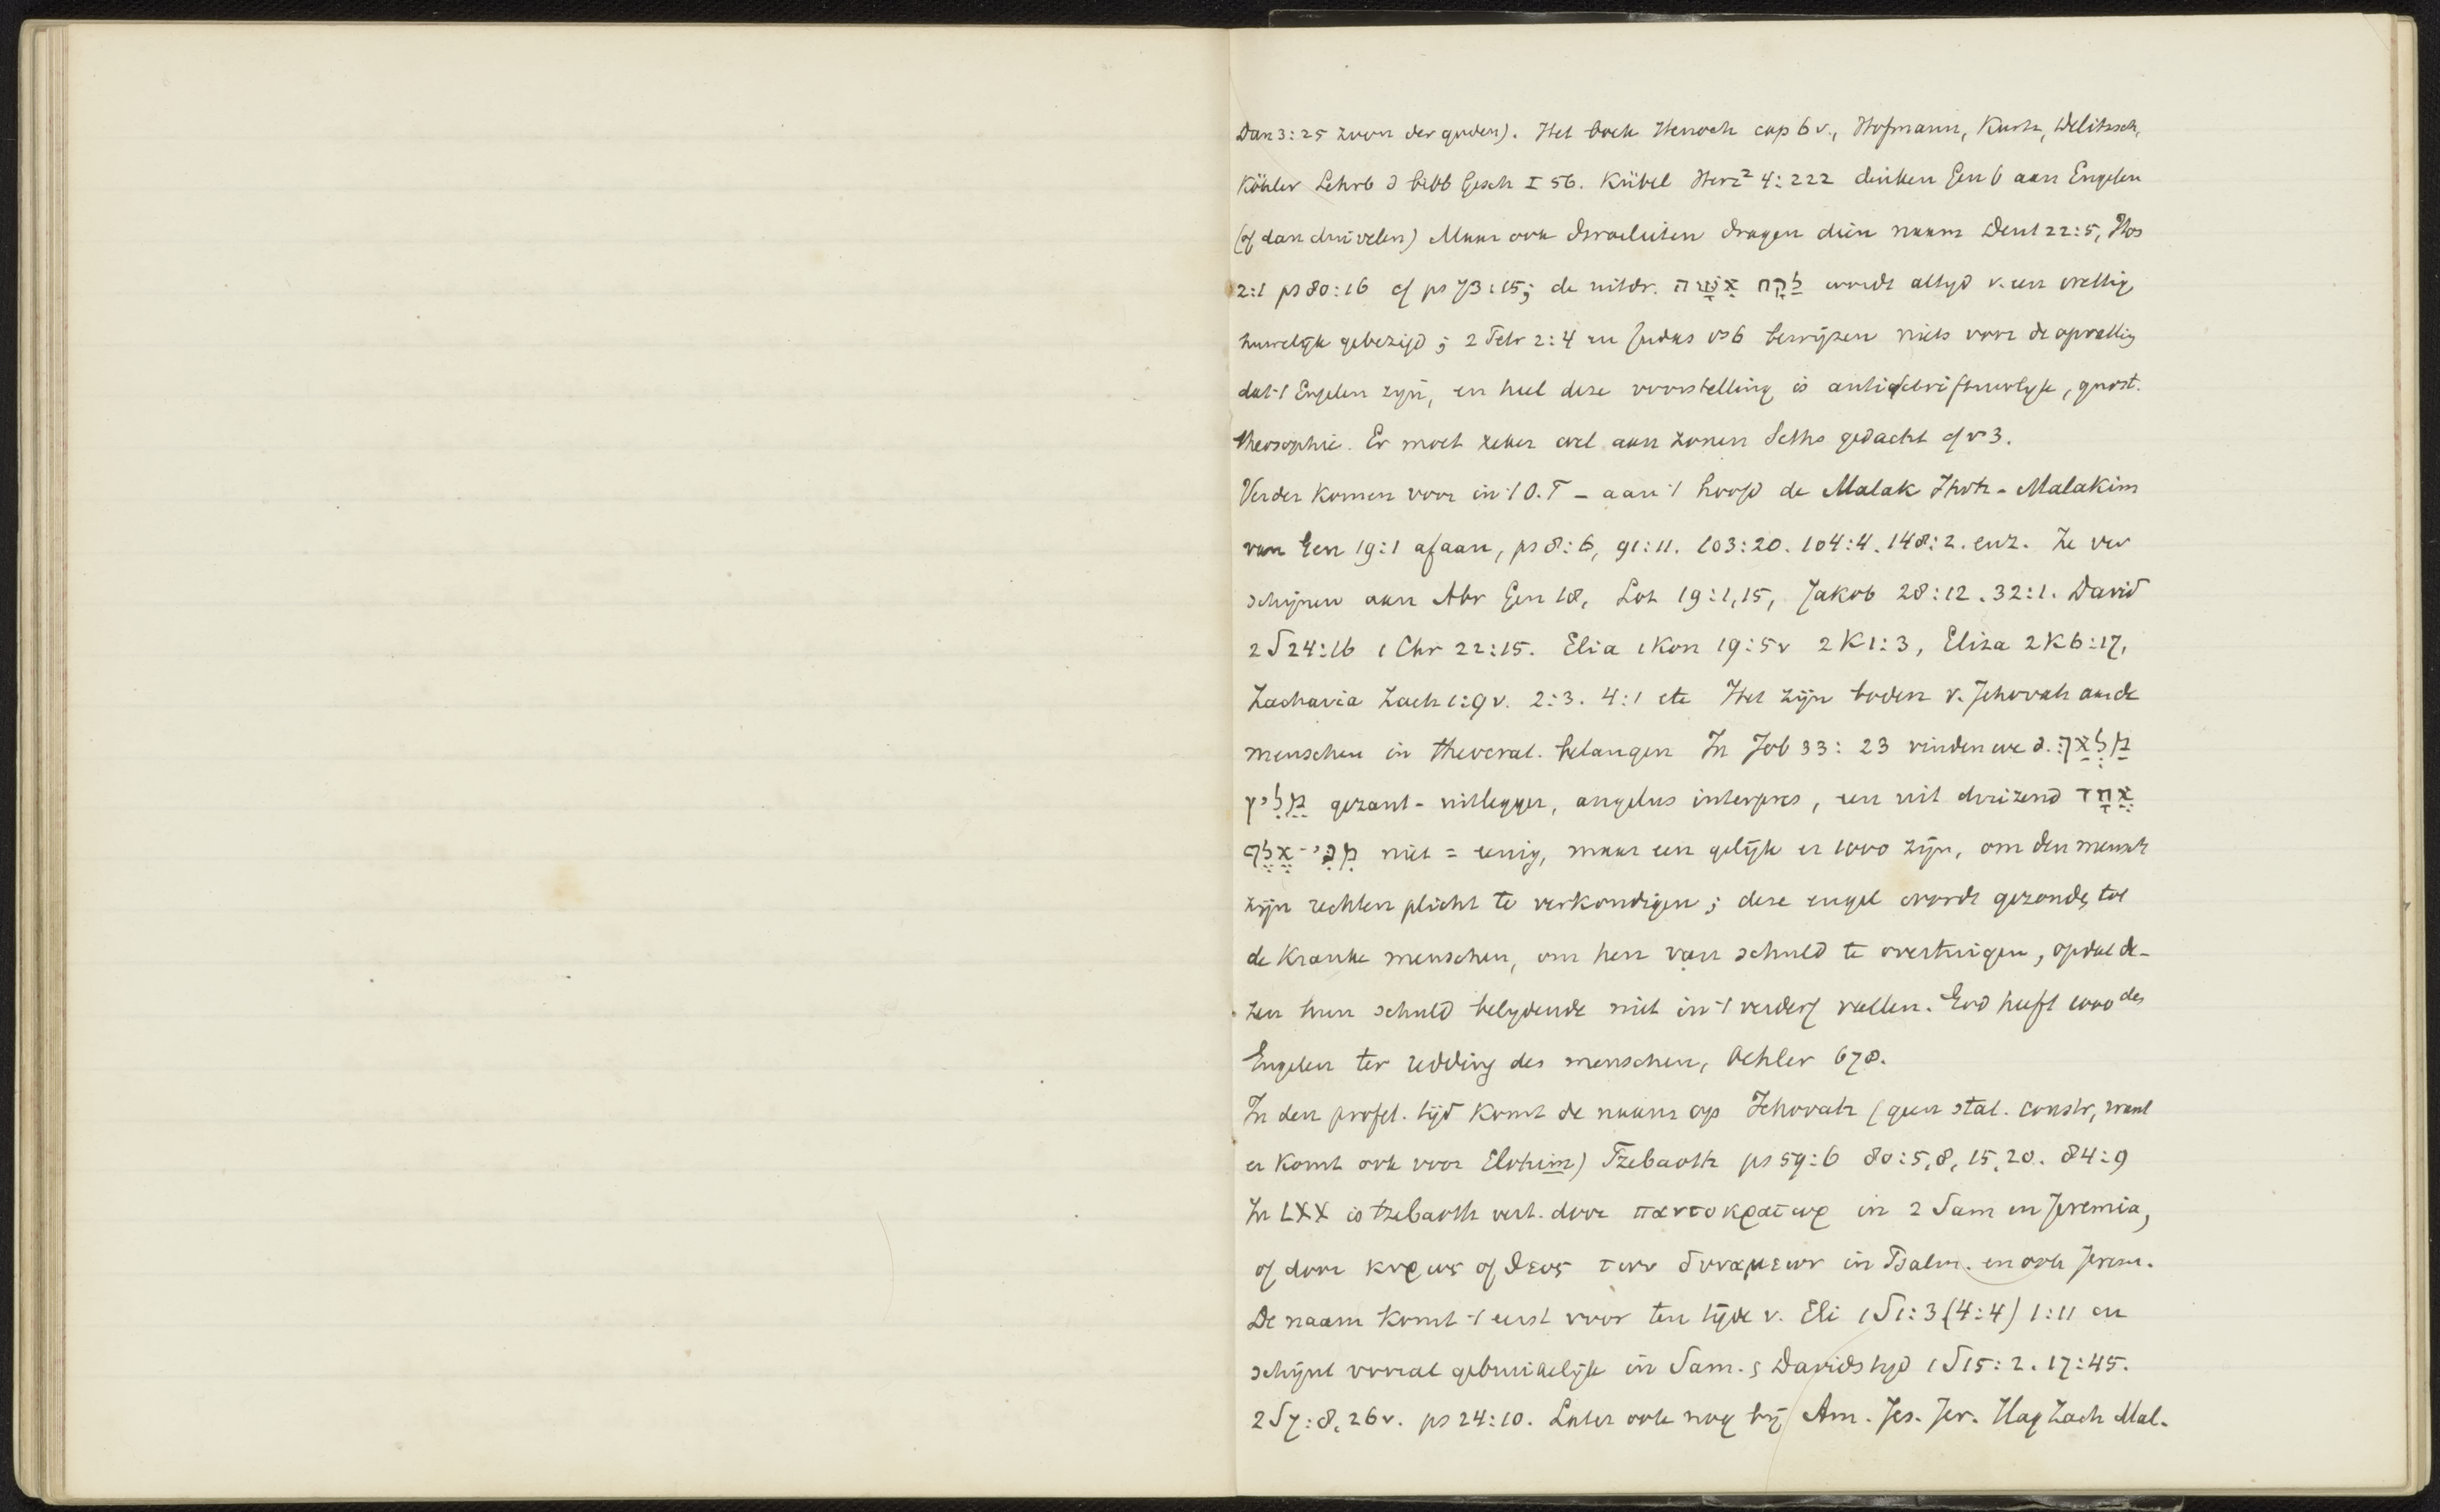 Dan 3:25 zoon der goden). Het boek Henoch cap 6 v., Hofmann, Kurtz, Delitzsch,
Köhler Lehrb d bibl Gesch I 56. Kübel Herz² 4:222 denken Gen 6 aan Engelen
(of dan duivelen) Maar ook Israelieten dragen dien naam Deut 22:5, Hos
2:1 ps 80:16 cf ps 73:15; de uitdr. לָקַח אִשָּׁה wordt altyd v. een wettig
huwelijk gebezigd; 2 Petr 2:4 en Judas vs 6 bewijzen niets voor de opvatting
dat 't Engelen zyn, en heel deze voorstelling is antischriftuurlyk, gnost.
theosophie. Er moet zeker wel aan zonen Seths gedacht cf v 3.
Verder komen voor in 't O.T - aan 't hoofd de Malak Jhvh - Malakim
van Gen 19:1 af aan, ps 8:6, 91:11. 103:20. 104:4. 148:2. enz. Ze ver
schijnen aan Abr Gen 18, Lot 19:1,15, Jakob 28:12. 32:1. David
2 S 24:16 1 Chr 22:15. Elia 1 Kon 19:5 v 2 K 1:3, Eliza 2 K 6:17,
Zacharia Zach 1:9 v. 2:3. 4:1 etc Het zijn boden v. Jehovah aan de
menschen in theocrat. belangen In Job 33:23 vinden we d. מַלְאָךְ
מֵלִיץ gezant-uitlegger, angelus interpres, een uit duizend אֶחָד
מִנִּי־אָלֶף niet = eenig, maar een gelijk er 1000 zijn, om den mensch
zijn rechten plicht te verkondigen; deze engel wordt gezonden tot
de kranke menschen, om hen van schuld te overtuigen, opdat de-
zen hun schuld belydende niet in 't verderf vallen. God heeft 1000 des
Engelen ter redding des menschen, Oehler 678.
In den profet. tijd komt de naam op Jehovah (geen stat. constr, want
er komt ook voor Elohim) Tzebaoth ps 59:6 80:5,8,15,20. 84:9
In LXX is tzebaoth vert. door παντοκρατωρ in 2 Sam en Jeremia,
of door κυριος of θεος των δυναμεων in Psalm. en ook Jerem.
De naam komt 't eerst voor ten tijde v. Eli 1 S 1:3 (4:4) 1:11 en
schijnt vooral gebruikelijk in Sam. & Davids tyd 1 S 15:2. 17:45.
2 S 7:8, 26 v. ps 24:10. Later ook nog bij Am. Jes. Jer. Hag Zach Mal.